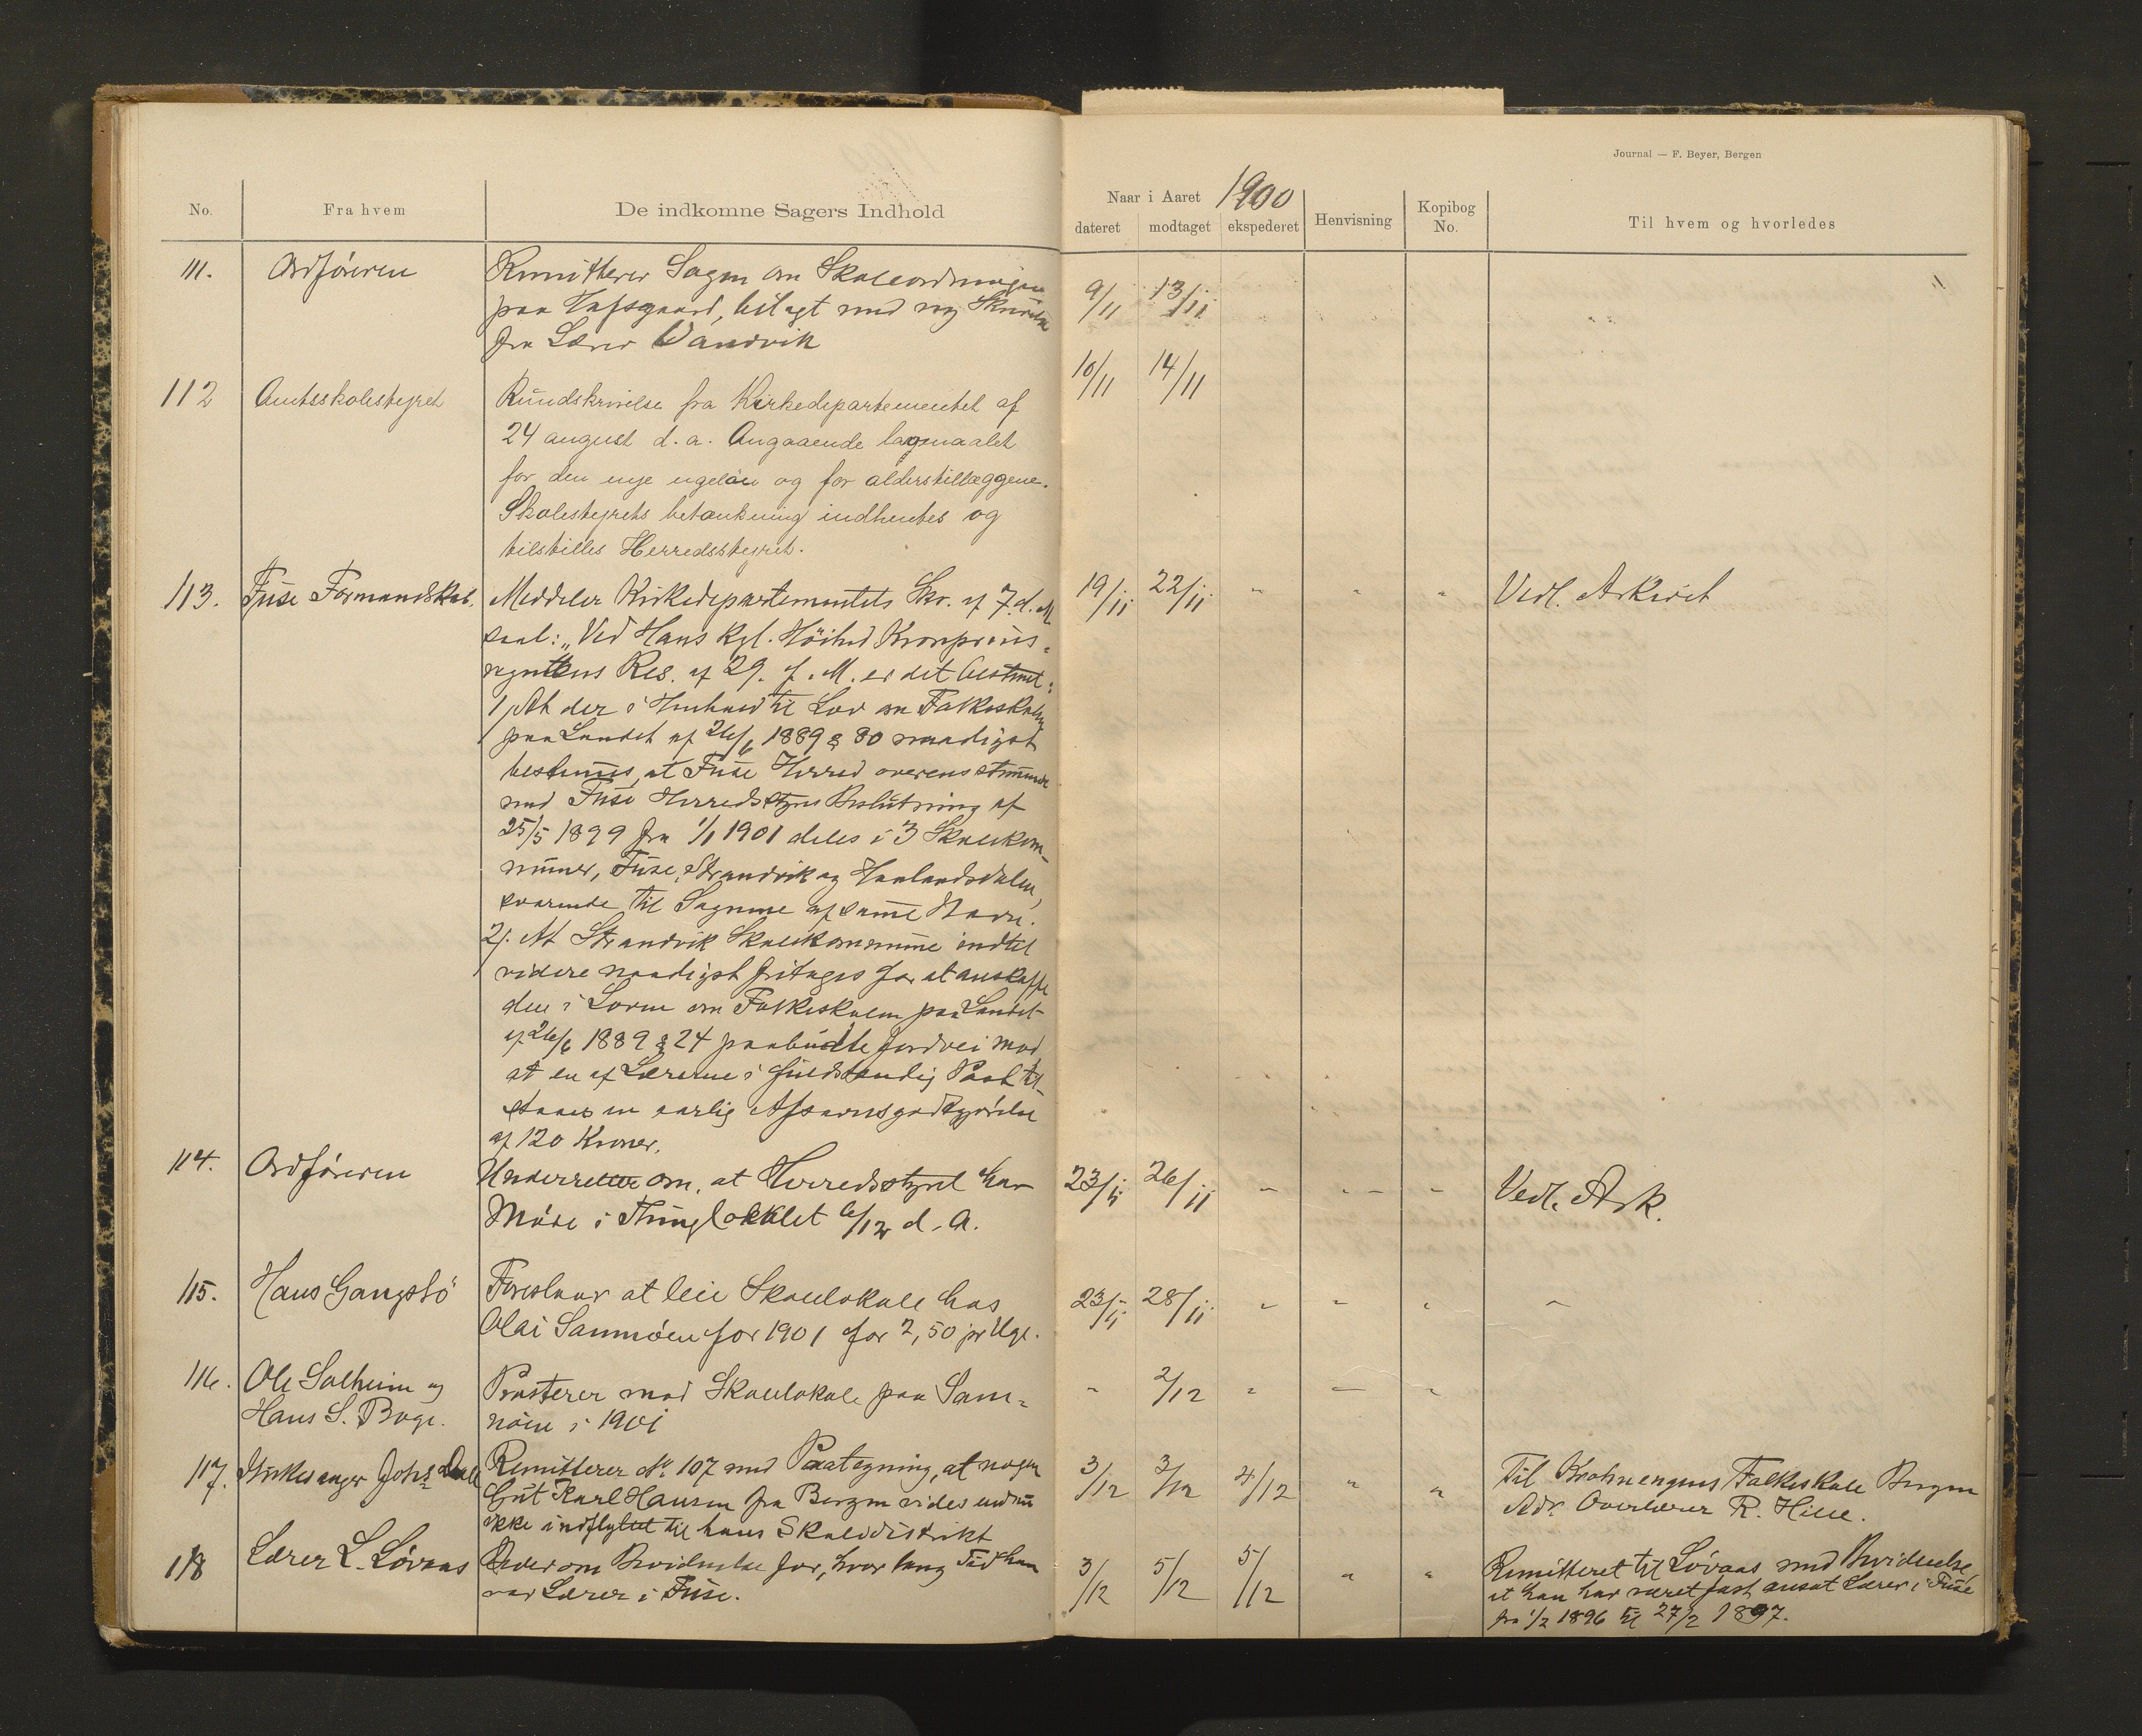 Journal — F. Beyer, Bergen
No. Fra hvem De indkomne Sagers Indhold
Naar i Aaret 1900
dateret modtaget ekspederet Henvisning Kopibog No. Til hvem og hvorledes
111. Ordføreren Remitterer Sagen om Skoleordningen 9/11 13/11
paa bilagt med ny Skrivelse
fra Lærer Vandvik
112 Amtsskolestyret Rundskrivelse fra Kirkedepartementet af 10/11 14/11
24 august d.a. Angaaende
for den nye ugeløn og for alderstillæggene.
Skolestyrets betænkning indhentes og
tilstilles Herredsstyret.
113. Fuse Formandskab. Meddeler Kirkedepartementets Skr. af 7. d. M 19/11 22/11 " " " Vedl. Arkivet
saal: „Ved Hans Kgl. Höihed Kronprins-
regentens Res. af 29. f. M. er det bestemt:
1, At der i Henhold til Lov om Folkeskolen
paa Landet af 26/6 1889 § 80 naadigst
bestemes, at Fuse Herred overensstemmende
med Fuse Herredsstyres Beslutning af
25/5 1899 fra 1/1 1901 deles i 3 Skolekom-
muner, Fuse, Strandvik og Haalandsdalen,
svarende til Sognene af samme Navn.
2, At Strandvik Skolekommune indtil
videre naadigst fritages for at anskaffe
den i Loven om Folkeskolen paa Landet
af 26/6 1889 § 24 paabudte Jordvei mod
at en af Lærerne i fuldstændig Post til-
staaes en aarlig Afsavnsgodtgjörelse
af 120 Kroner.
114. Ordføreren Underretter om, at Herredsstyret har 23/11 26/11 " " " Vedl. Ark.
Møde i Thinglokalet 6/12 d. A.
115. Hans Gangstø Foreslaar at leie Skolelokale hos 23/11 28/11 " " " "
Olai Samnøen for 1901 for 2,50 pr Uge.
116. Ole Solheim og Protesterer mod Skolelokale paa Sam- " 2/12 " " "
Hans S. Boge. nøen i 1901
117. Kirkesanger Johs Dale Remitterer No 107 med Paategning, at nogen 3/12 3/12 4/12 " " Til Krohnengens Folkeskole Bergen
Gut Karl Hansen fra Bergen vides endnu Adr. Overlærer R. Hille.
ikke indflyttet til hans Skoledistrikt
118 Lærer L. Løvaas Beder om Bevidnelse for, hvor lang Tid han 3/12 5/12 5/12 " " Remitteret til Løvaas med Bevidnelse,
var Lærer i Fuse. at han har været fast ansat Lærer i Fuse
fra 1/2 1896 til 27/2 1897.